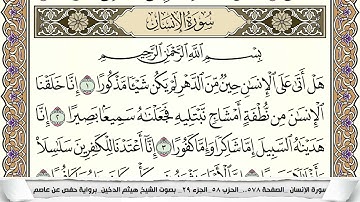 سُورَةُ الإِنسَانِ
بِسْمِ اللَّهِ الرَّحْمَٰنِ الرَّحِيمِ
هَلْ أَتَىٰ عَلَى الْإِنسَٰنِ حِينٌ مِّنَ الدَّهْرِ لَمْ يَكُن شَيْـًٔا مَّذْكُورًا ١ إِنَّا خَلَقْنَا
الْإِنسَٰنَ مِن نُّطْفَةٍ أَمْشَاجٍ نَّبْتَلِيهِ فَجَعَلْنَٰهُ سَمِيعًۢا بَصِيرًا ٢ إِنَّا
هَدَيْنَٰهُ السَّبِيلَ إِمَّا شَاكِرًا وَإِمَّا كَفُورًا ٣ إِنَّآ أَعْتَدْنَا لِلْكَٰفِرِينَ سَلَٰسِلَا۟
سورة الإنسان _ الصفحة ٥٧٨ _ الحزب ٥٨ _ الجزء ٢٩ _ بصوت الشيخ هيثم الدخين _ برواية حفص عن عاصم